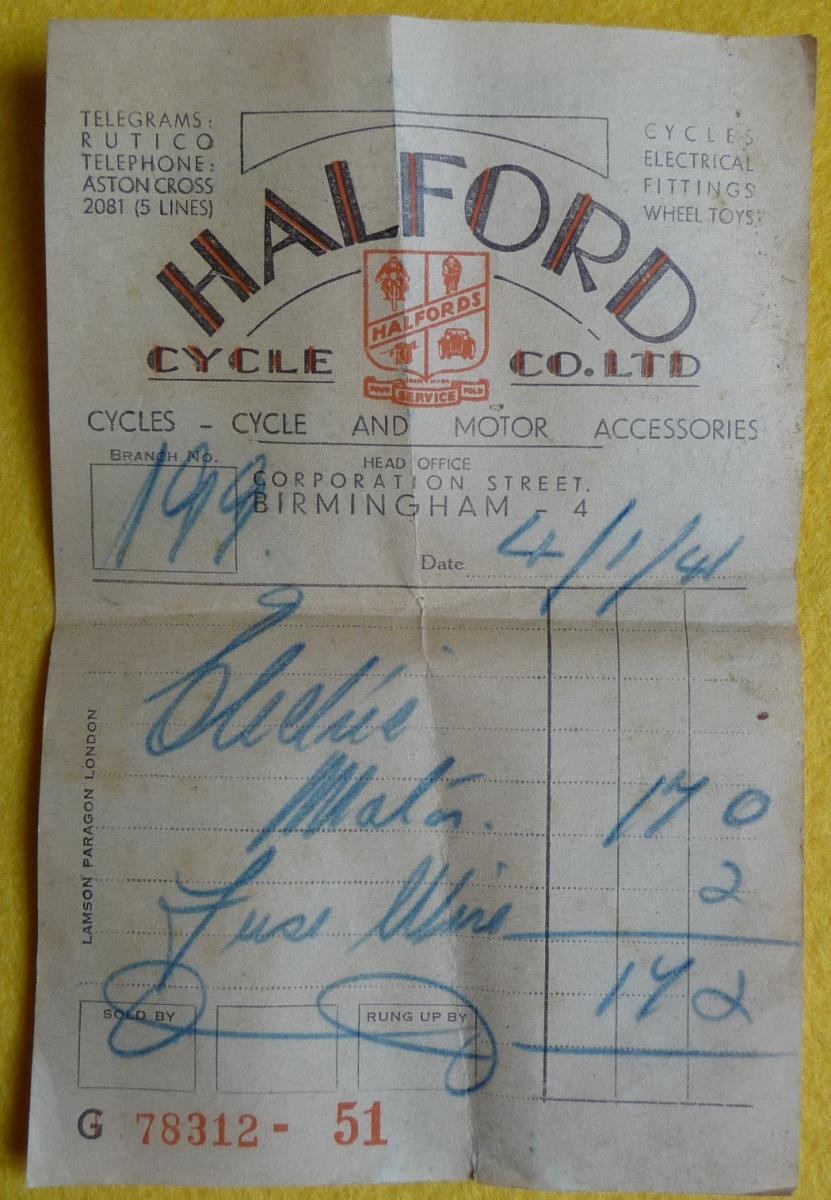 TELEGRAMS:
RUTICO
TELEPHONE:
ASTON CROSS
2081 (5 LINES)
CYCLES
ELECTRICAL
FITTINGS
WHEEL TOYS
HALFORD
HALFORDS
TRADE MARK
FOUR SERVICE FOLD
CYCLE CO. LTD
CYCLES - CYCLE AND MOTOR ACCESSORIES
BRANCH NO.
199.
HEAD OFFICE
CORPORATION STREET.
BIRMINGHAM - 4
Date 4/1/41
Electric
Motor. 17 0
Fuse Wire 2
17 2
LAMSON PARAGON LONDON
SOLD BY
RUNG UP BY
G 78312 - 51